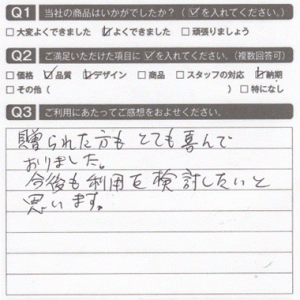 Q1 当社の商品はいかがでしたか？（☑を入れてください。）
□大変よくできました ☑よくできました □頑張りましょう
Q2 ご満足いただけた項目に☑を入れてください。（複数回答可）
□価格 ☑品質 ☑デザイン □商品 □スタッフの対応 ☑納期
□その他（　）□特になし
Q3 ご利用にあたってご感想をおよせください。
贈られた方も とても喜んで
おりました。
今後も利用を検討したいと
思います。